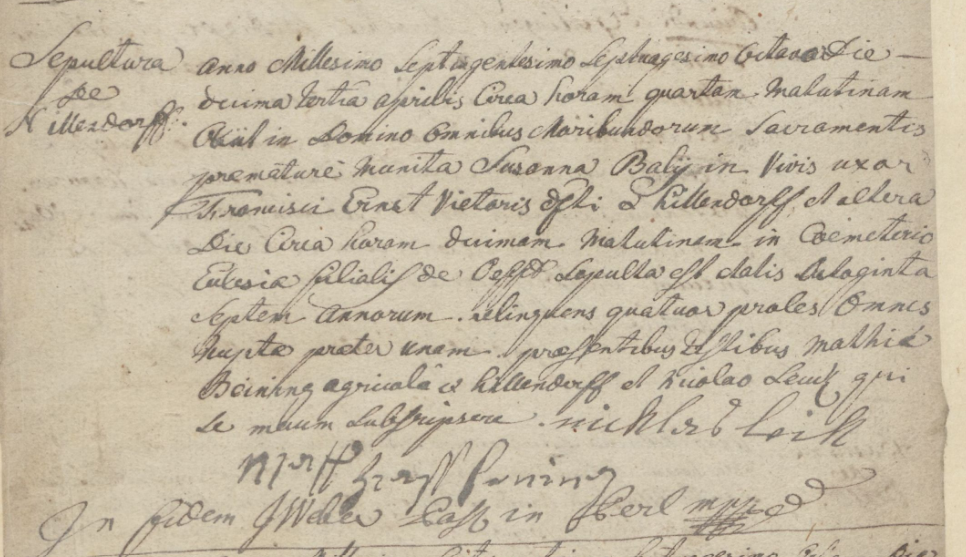 Sepultura
De
Hillendorff.
anno Millesimo Septingentesimo Septuagesimo octavo Die
decima tertia aprilis Circa horam quartam Matutinam
Obiit in Domino omnibus Moribundorum Sacramentis
premature Munita Susanna Baly in Vivis uxor
Francisci Ernst Pistoris ex hillendorff et altera
Die Circa horam decimam Matutinam in Coemeterio
Eclesia filialis de sepulta est aetatis
Septem annorum relinquens quatuor proles omnes
nuptae praeter unam praesentibus testibus Mathia
Beining agricola ex hillendorff et nicolao Leuck qui
se mecum subscripsere nicklas leick
In fidem J Weber Past in berl